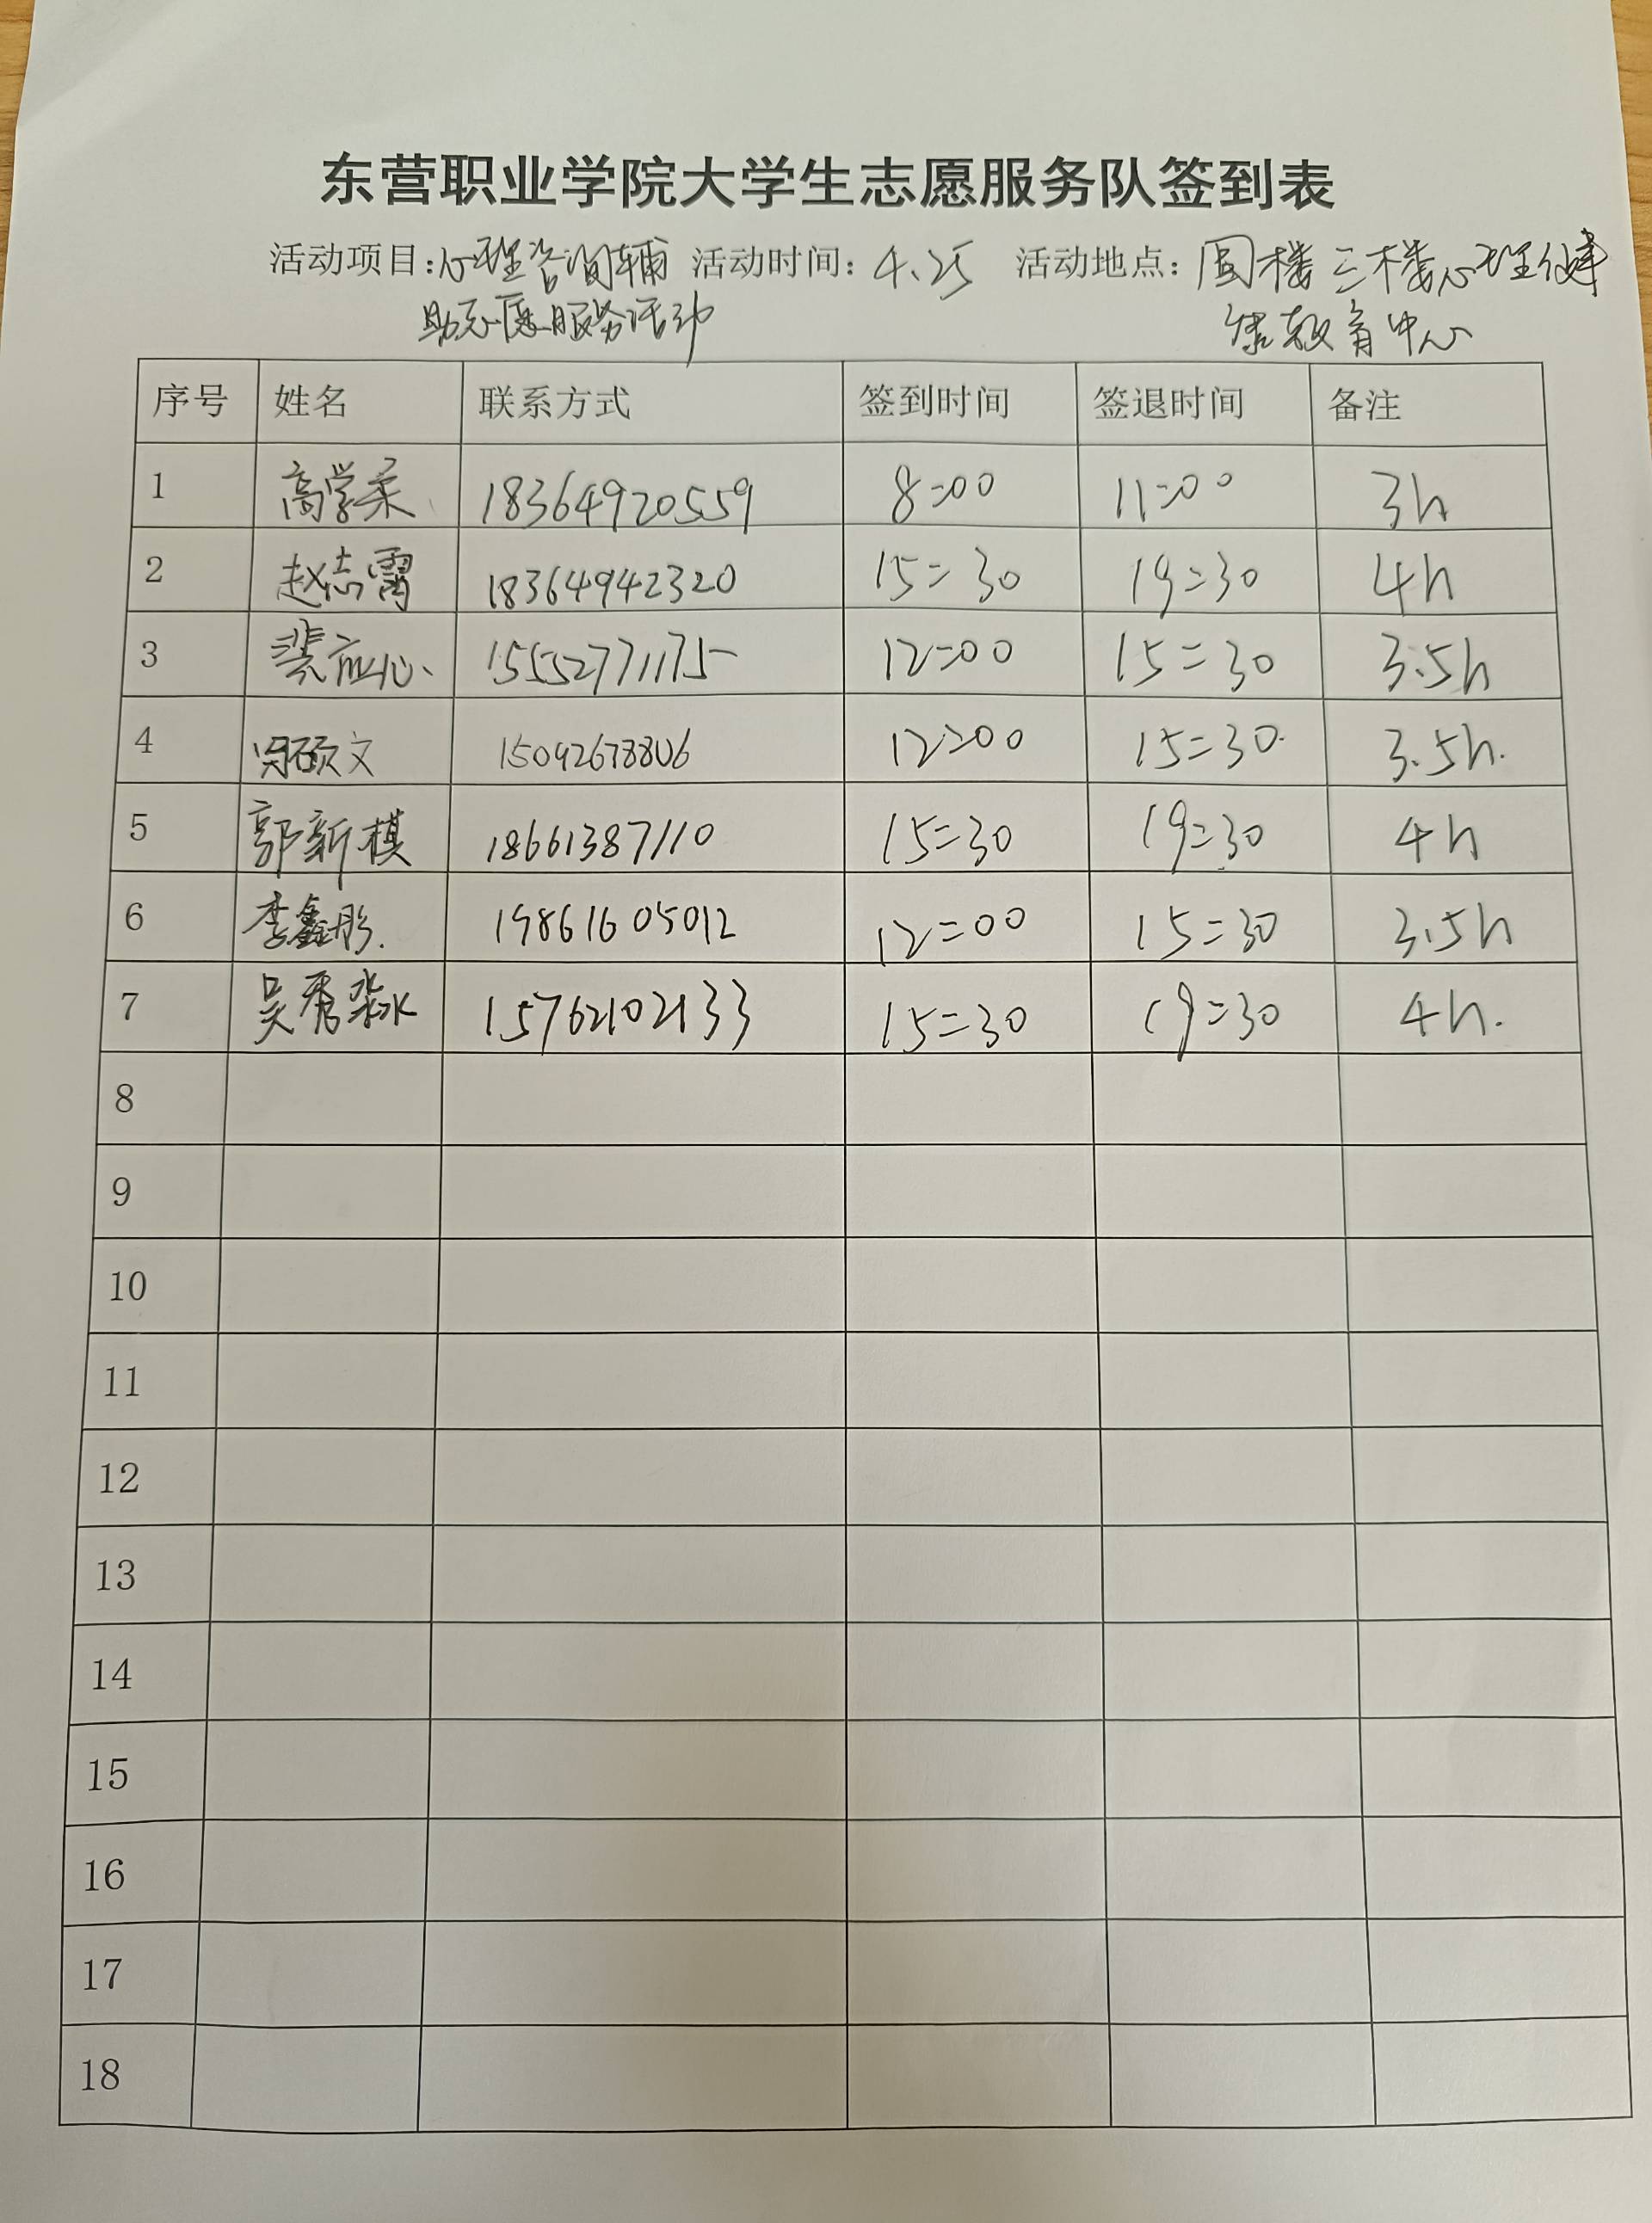 东营职业学院大学生志愿服务队签到表
活动项目:心理咨询辅 活动时间: 4.25 活动地点: 圆楼三楼心理健
助志愿服务活动 康教育中心
序号 姓名 联系方式 签到时间 签退时间 备注
1 高学柔 18364920559 8:00 11:00 3h
2 赵志霄 18364942320 15:30 19:30 4h
3 裴应心 15552771175 12:00 15:30 3.5h
4 硕文 15092678806 12:00 15:30 3.5h.
5 郭新棋 18661387110 15:30 19:30 4h
6 李鑫彤 19861605012 12:00 15:30 3.5h
7 吴秀淼 15762102133 15:30 19:30 4h.
8
9
10
11
12
13
14
15
16
17
18